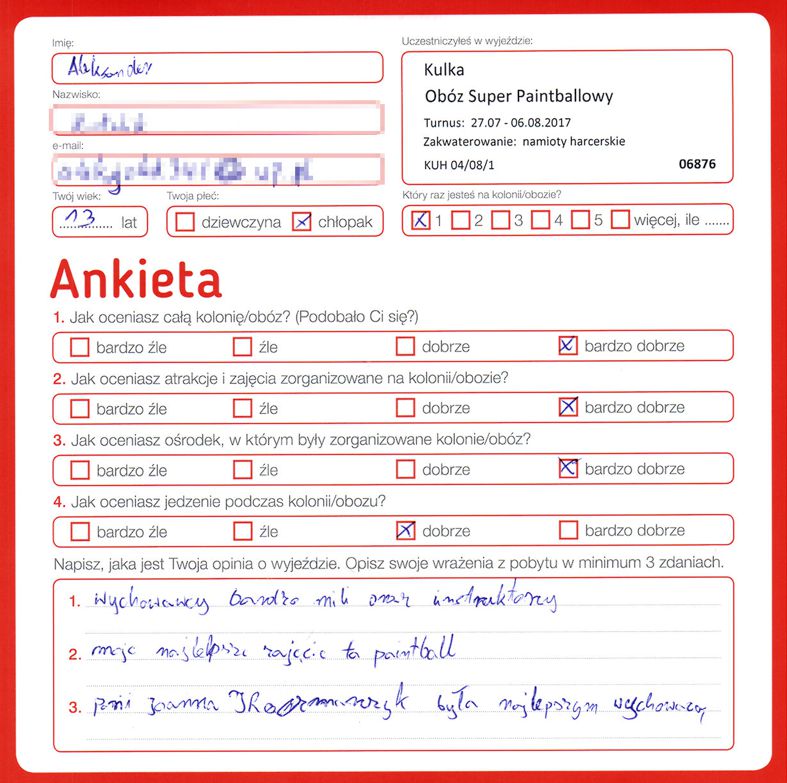 Imię:
Uczestniczyłeś w wyjeździe:
Aleksander
Kulka
Obóz Super Paintballowy
Turnus: 27.07 - 06.08.2017
Zakwaterowanie: namioty harcerskie
KUH 04/08/1 06876
Nazwisko:
e-mail:
Twój wiek:
Twoja płeć:
Który raz jesteś na kolonii/obozie?
13 lat
dziewczyna chłopak
1 2 3 4 5 więcej, ile .......
Ankieta
1. Jak oceniasz całą kolonię/obóz? (Podobało Ci się?)
bardzo źle źle dobrze bardzo dobrze
2. Jak oceniasz atrakcje i zajęcia zorganizowane na kolonii/obozie?
bardzo źle źle dobrze bardzo dobrze
3. Jak oceniasz ośrodek, w którym były zorganizowane kolonie/obóz?
bardzo źle źle dobrze bardzo dobrze
4. Jak oceniasz jedzenie podczas kolonii/obozu?
bardzo źle źle dobrze bardzo dobrze
Napisz, jaka jest Twoja opinia o wyjeździe. Opisz swoje wrażenia z pobytu w minimum 3 zdaniach.
1. wychowawcy bardzo mili oraz instruktorzy
2. moje najlepsze zajęcie to paintball
3. pani Joanna była najlepszym wychowawcą